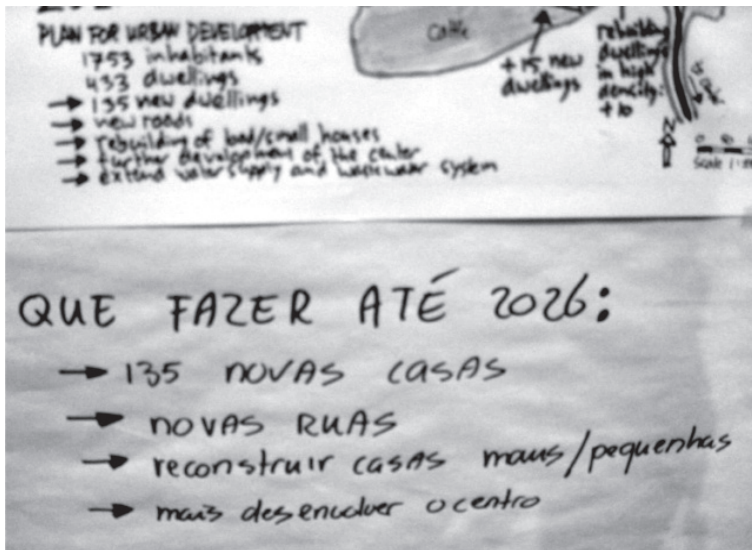 PLAN FOR URBAN DEVELOPMENT
1753 inhabitants
433 dwellings
→ 135 new dwellings
→ new roads
→ rebuilding of bad/small houses
→ further development of the center
→ extend water supply and system
Cattle
+15 new
dwellings
rebuilding
dwellings
in high
density:
+10
N
Scale
QUE FAZER ATÉ 2026:
→ 135 NOVAS CASAS
→ NOVAS RUAS
→ reconstruir casas maus/pequenhas
→ mais desenvolver o centro